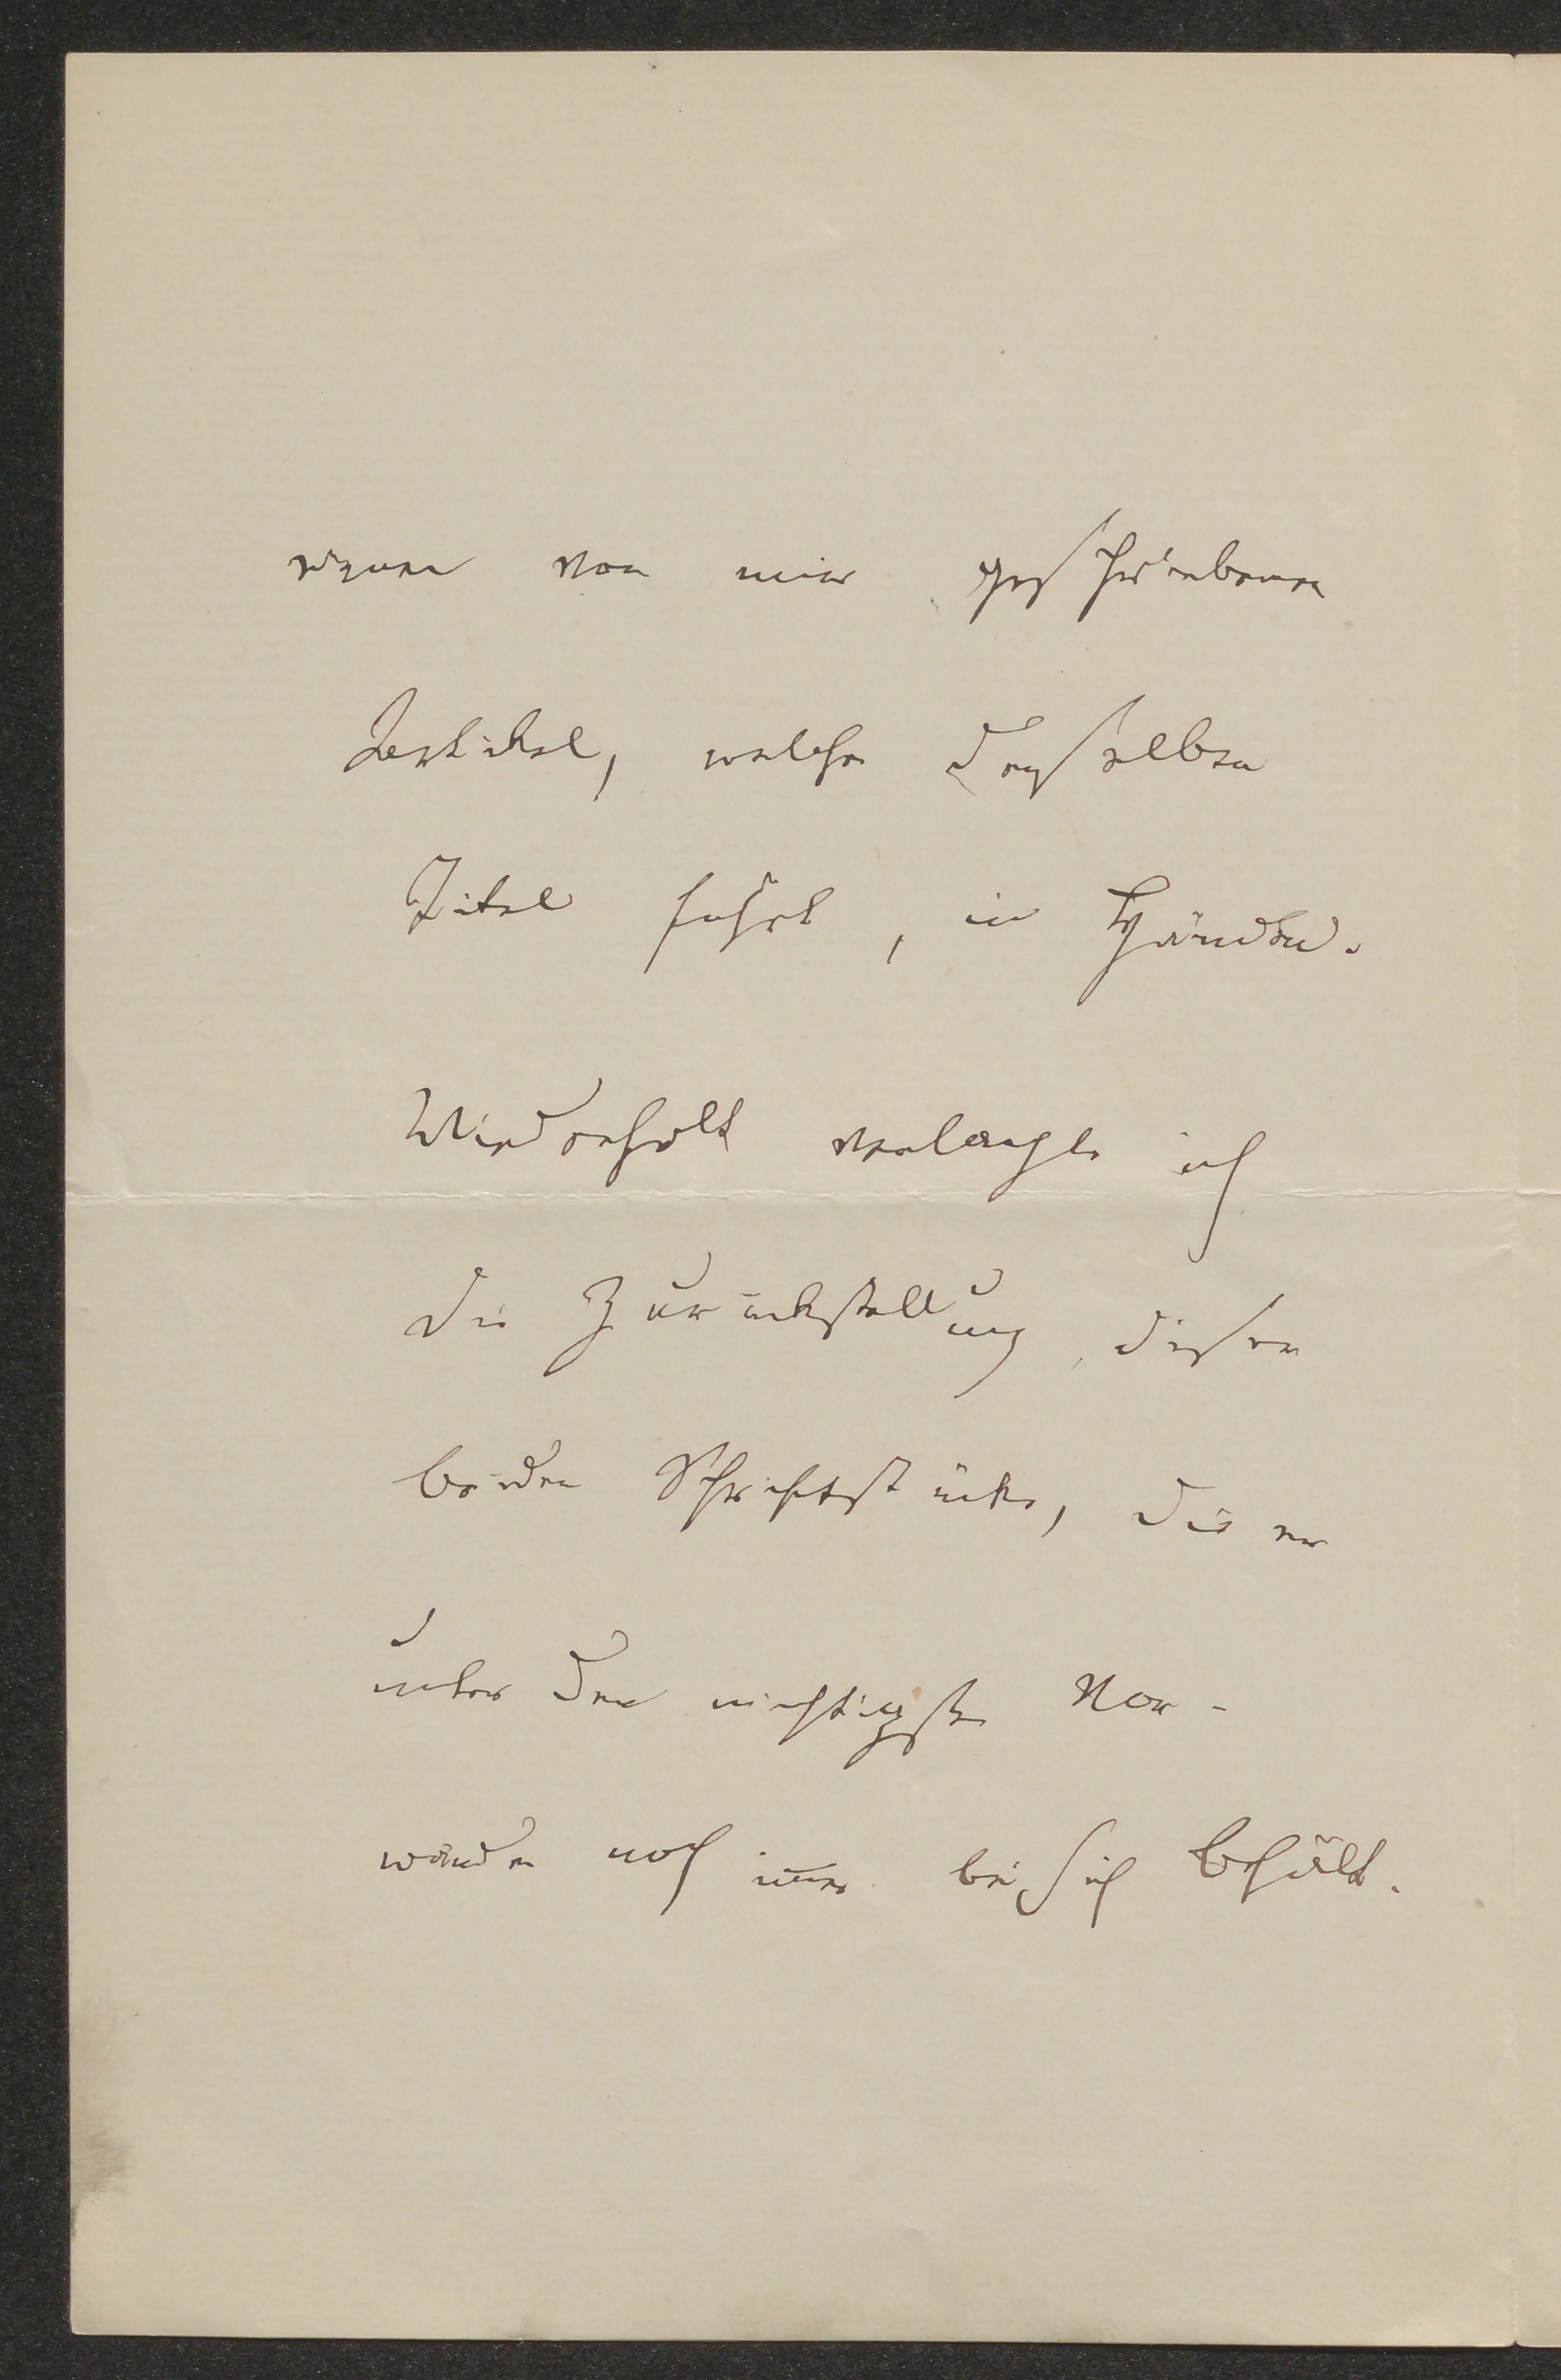 einen von mir geschriebenen
Artikel, welcher denselben
Titel führt, in Händen.
Wiederholt verlangte ich
die Zurückstellung dieser
beiden Schriftstücke, die er
unter den nichtigsten Vor-
wänden noch immer bei sich behält.